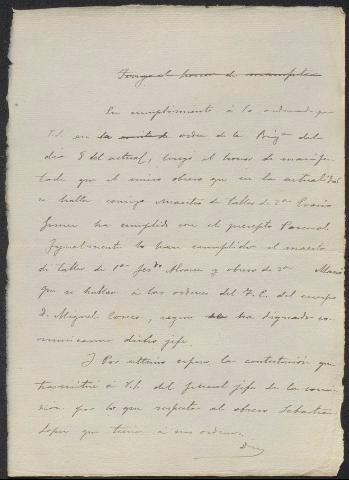 Tengo el honor de manifestar
En cumplimiento á lo ordenado por
V.S. en la orden de la Brigª del
dia 8 del actual, tengo el honor de manifes-
tarle que el único obrero que en la actualidad
se halla conmigo Maestro de taller de 2ª
Gomez ha cumplido con el precepto Pascual
Igualmente lo han cumplido el maestro
de taller de 1ª Alvarez y obrero de 2ª
que se hallan á las ordenes del T.C. del cuerpo
D. Miguel segun se ha dignado co-
municarme dicho jefe.
Por ultimo espero la contestación que
transmitiré á V.S. del jefe de la comi-
sion por lo que respecta al obrero Sebastian
Lopez que tiene á sus ordenes.